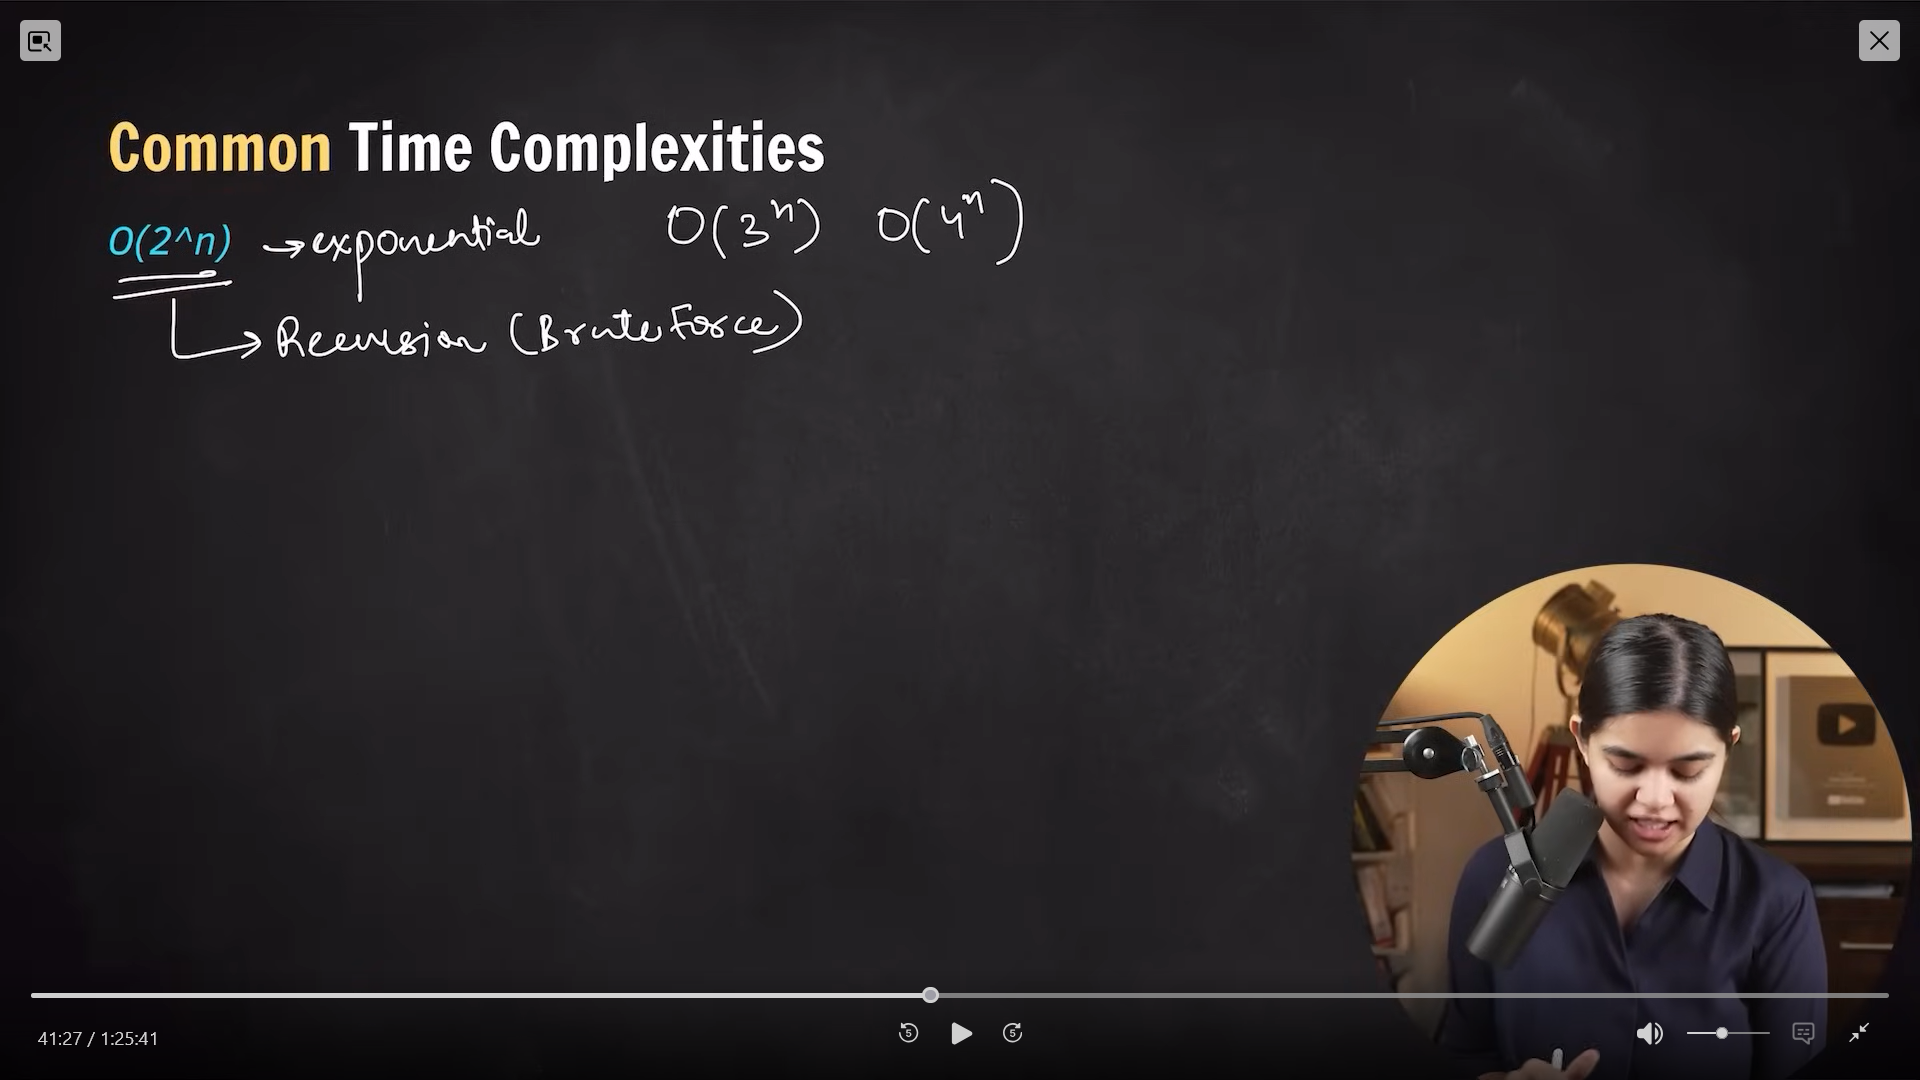 Common Time Complexities
O(2^n) → exponential O(3ⁿ) O(4ⁿ)
→ Recursion (Brute Force)
41:27 / 1:25:41
5 5